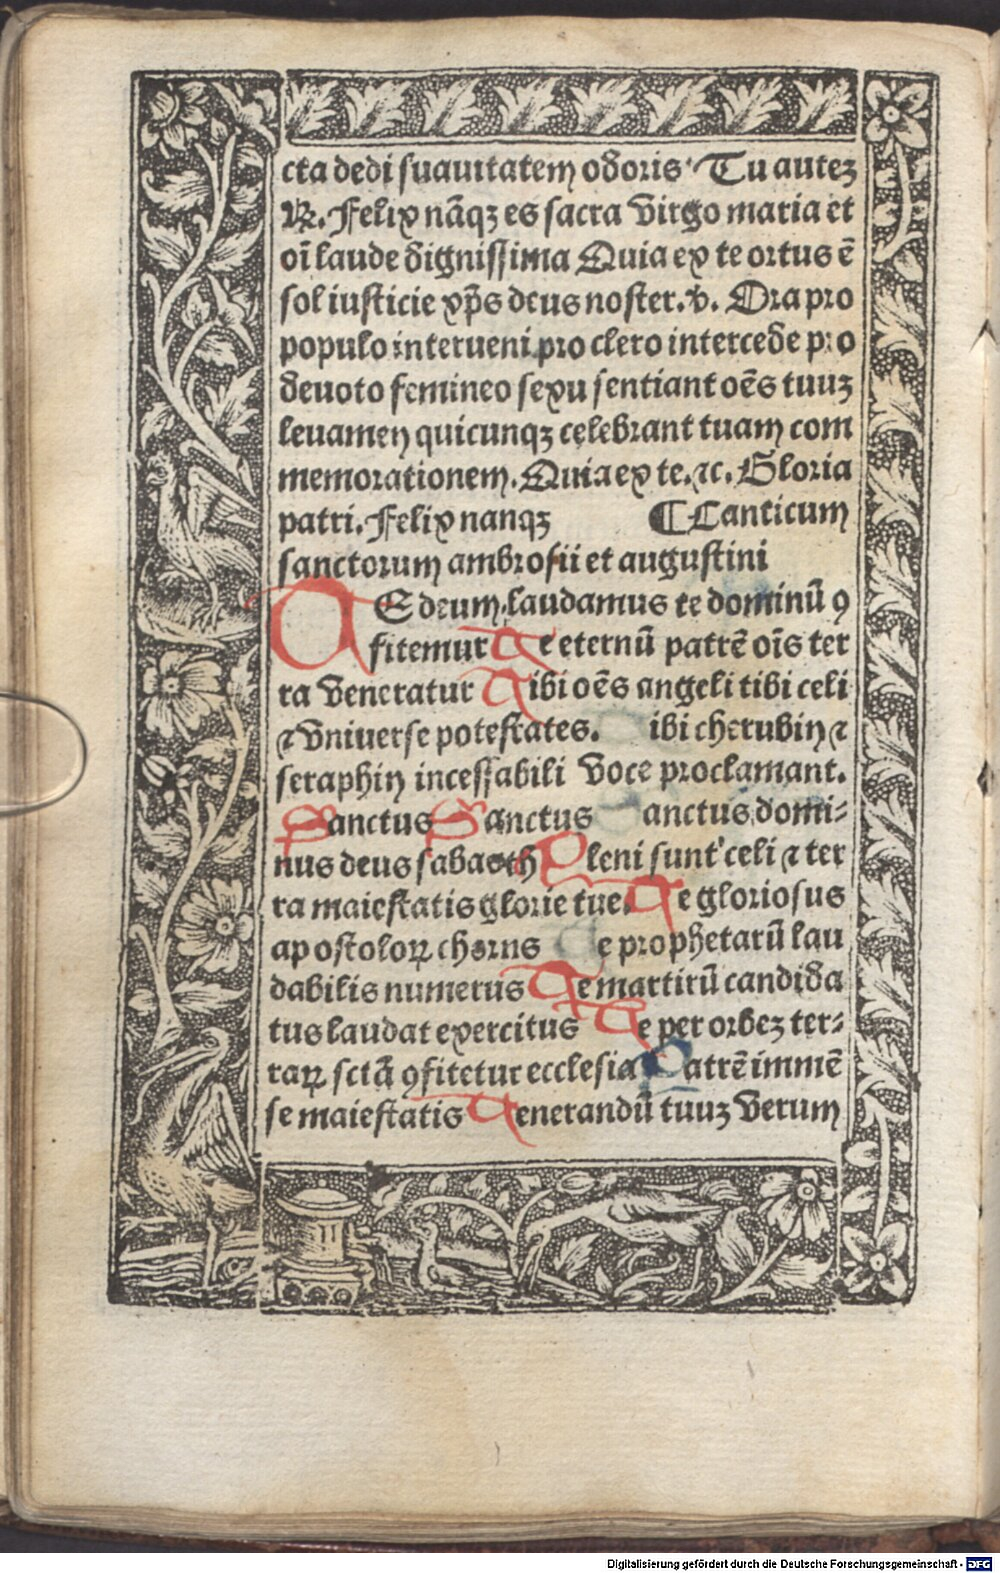 cta dedi suauitatem odoris· Tu auteʒ
℟. Felix nāqʒ es sacra virgo maria et
oī laude dignissima Quia ex te ortus ē
sol iusticie xp̄s deus noster. ℣. Ora pro
populo interueni pro clero intercede pro
deuoto femineo sexu sentiant oēs tuuʒ
leuamen quicunqʒ celebrant tuam com
memorationem. Quia ex te. ⁊c. Gloria
patri. Felix nanqʒ ¶ Canticum
sanctorum ambrosii et augustini
TE deum laudamus te dominū ꝯ
fitemur Te eternū patrē oīs ter
ra veneratur Tibi oēs angeli tibi celi
⁊ vniuerse potestates. ibi cherubin ⁊
seraphin incessabili voce proclamant.
Sanctus Sanctus anctus domi-
nus deus sabaoth Pleni sunt celi ⁊ ter
ra maiestatis glorie tue. Te gloriosus
apostoloꝝ chorus Te prophetarū lau
dabilis numerus Te martirū candida
tus laudat exercitus Te per orbeʒ ter-
raꝝ sctā ꝯfitetur ecclesia Patrē immē
se maiestatis Venerandū tuuʒ verum
Digitalisierung gefördert durch die Deutsche Forschungsgemeinschaft - DFG